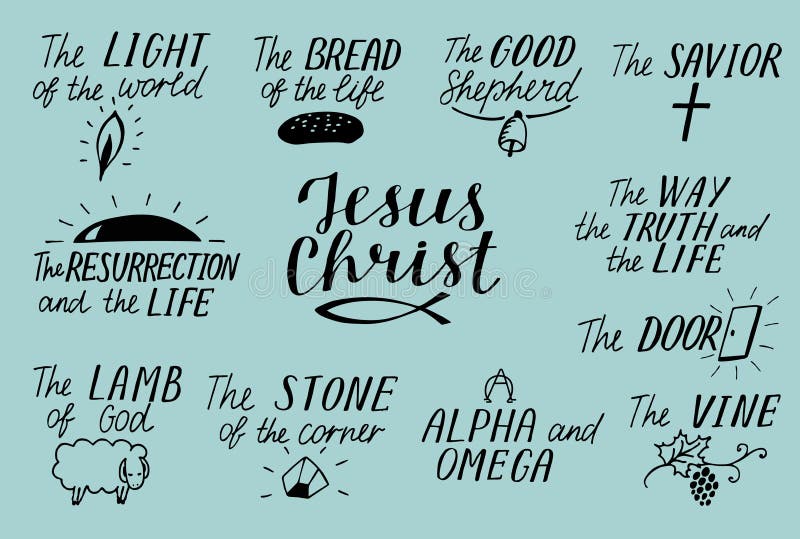 The LIGHT
of the world
The BREAD
of the life
The GOOD
Shepherd
The SAVIOR
Jesus
Christ
The WAY
the TRUTH and
the LIFE
The RESURRECTION
and the LIFE
The DOOR
The LAMB
of GOD
The STONE
of the corner
ALPHA and
OMEGA
The VINE
dreamstime